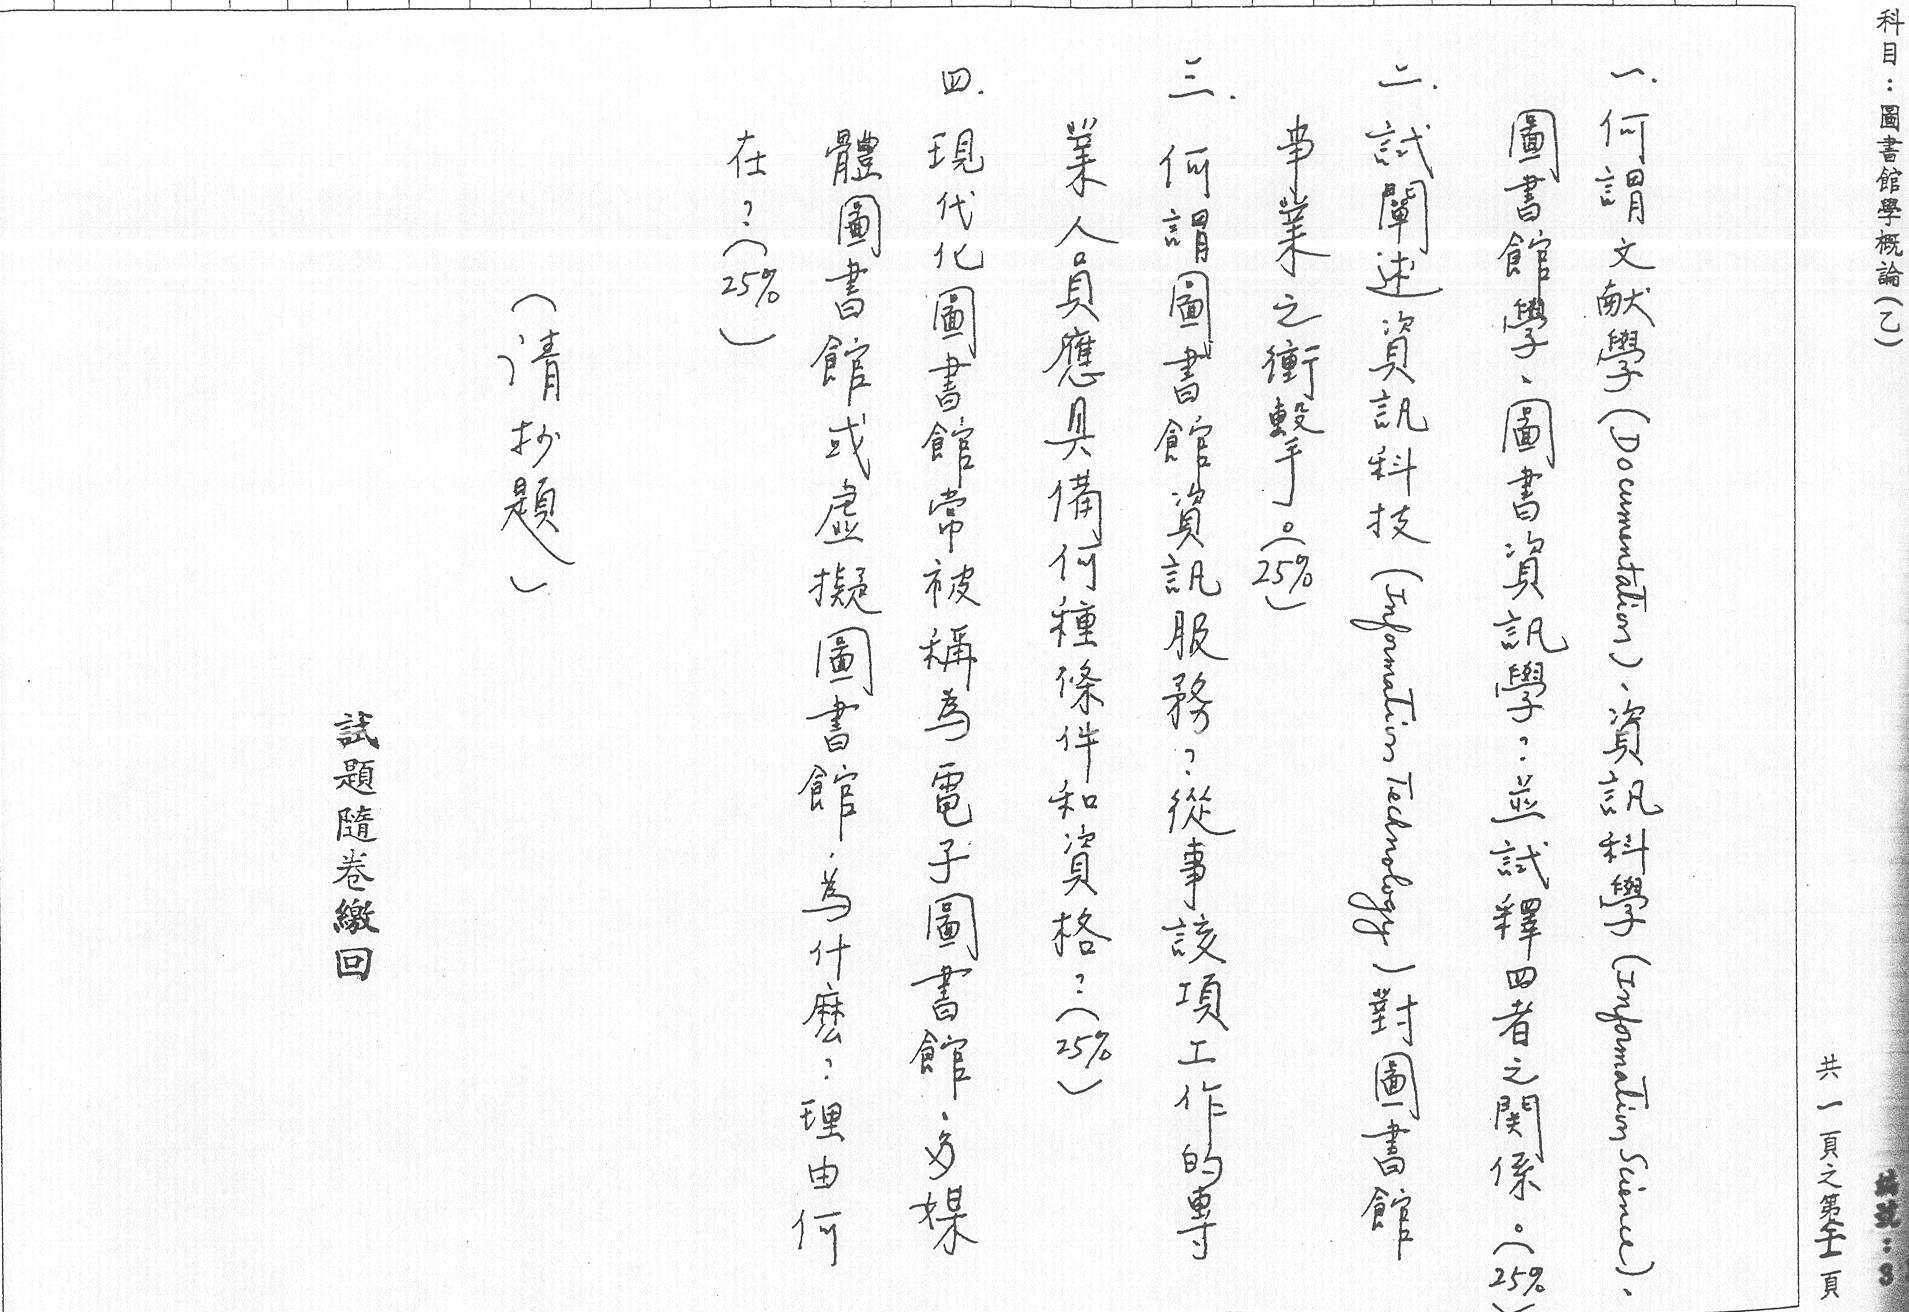 科目：圖書館學概論(乙)
編號：3
共一頁之第全頁
一.何謂文献學(Documentation)、資訊科學(Information Science)、
圖書館學、圖書資訊學？並試釋四者之関係。(25%)
二.試闡述資訊科技(Information Technology)對圖書館
事業之衝擊。(25%)
三.何謂圖書館資訊服務？從事該項工作的專
業人員應具備何種條件和資格？(25%)
四.現代化圖書館常被稱為電子圖書館、多媒
體圖書館或虛擬圖書館、為什麼？理由何
在？(25%)
(请抄題)
試題隨卷繳回